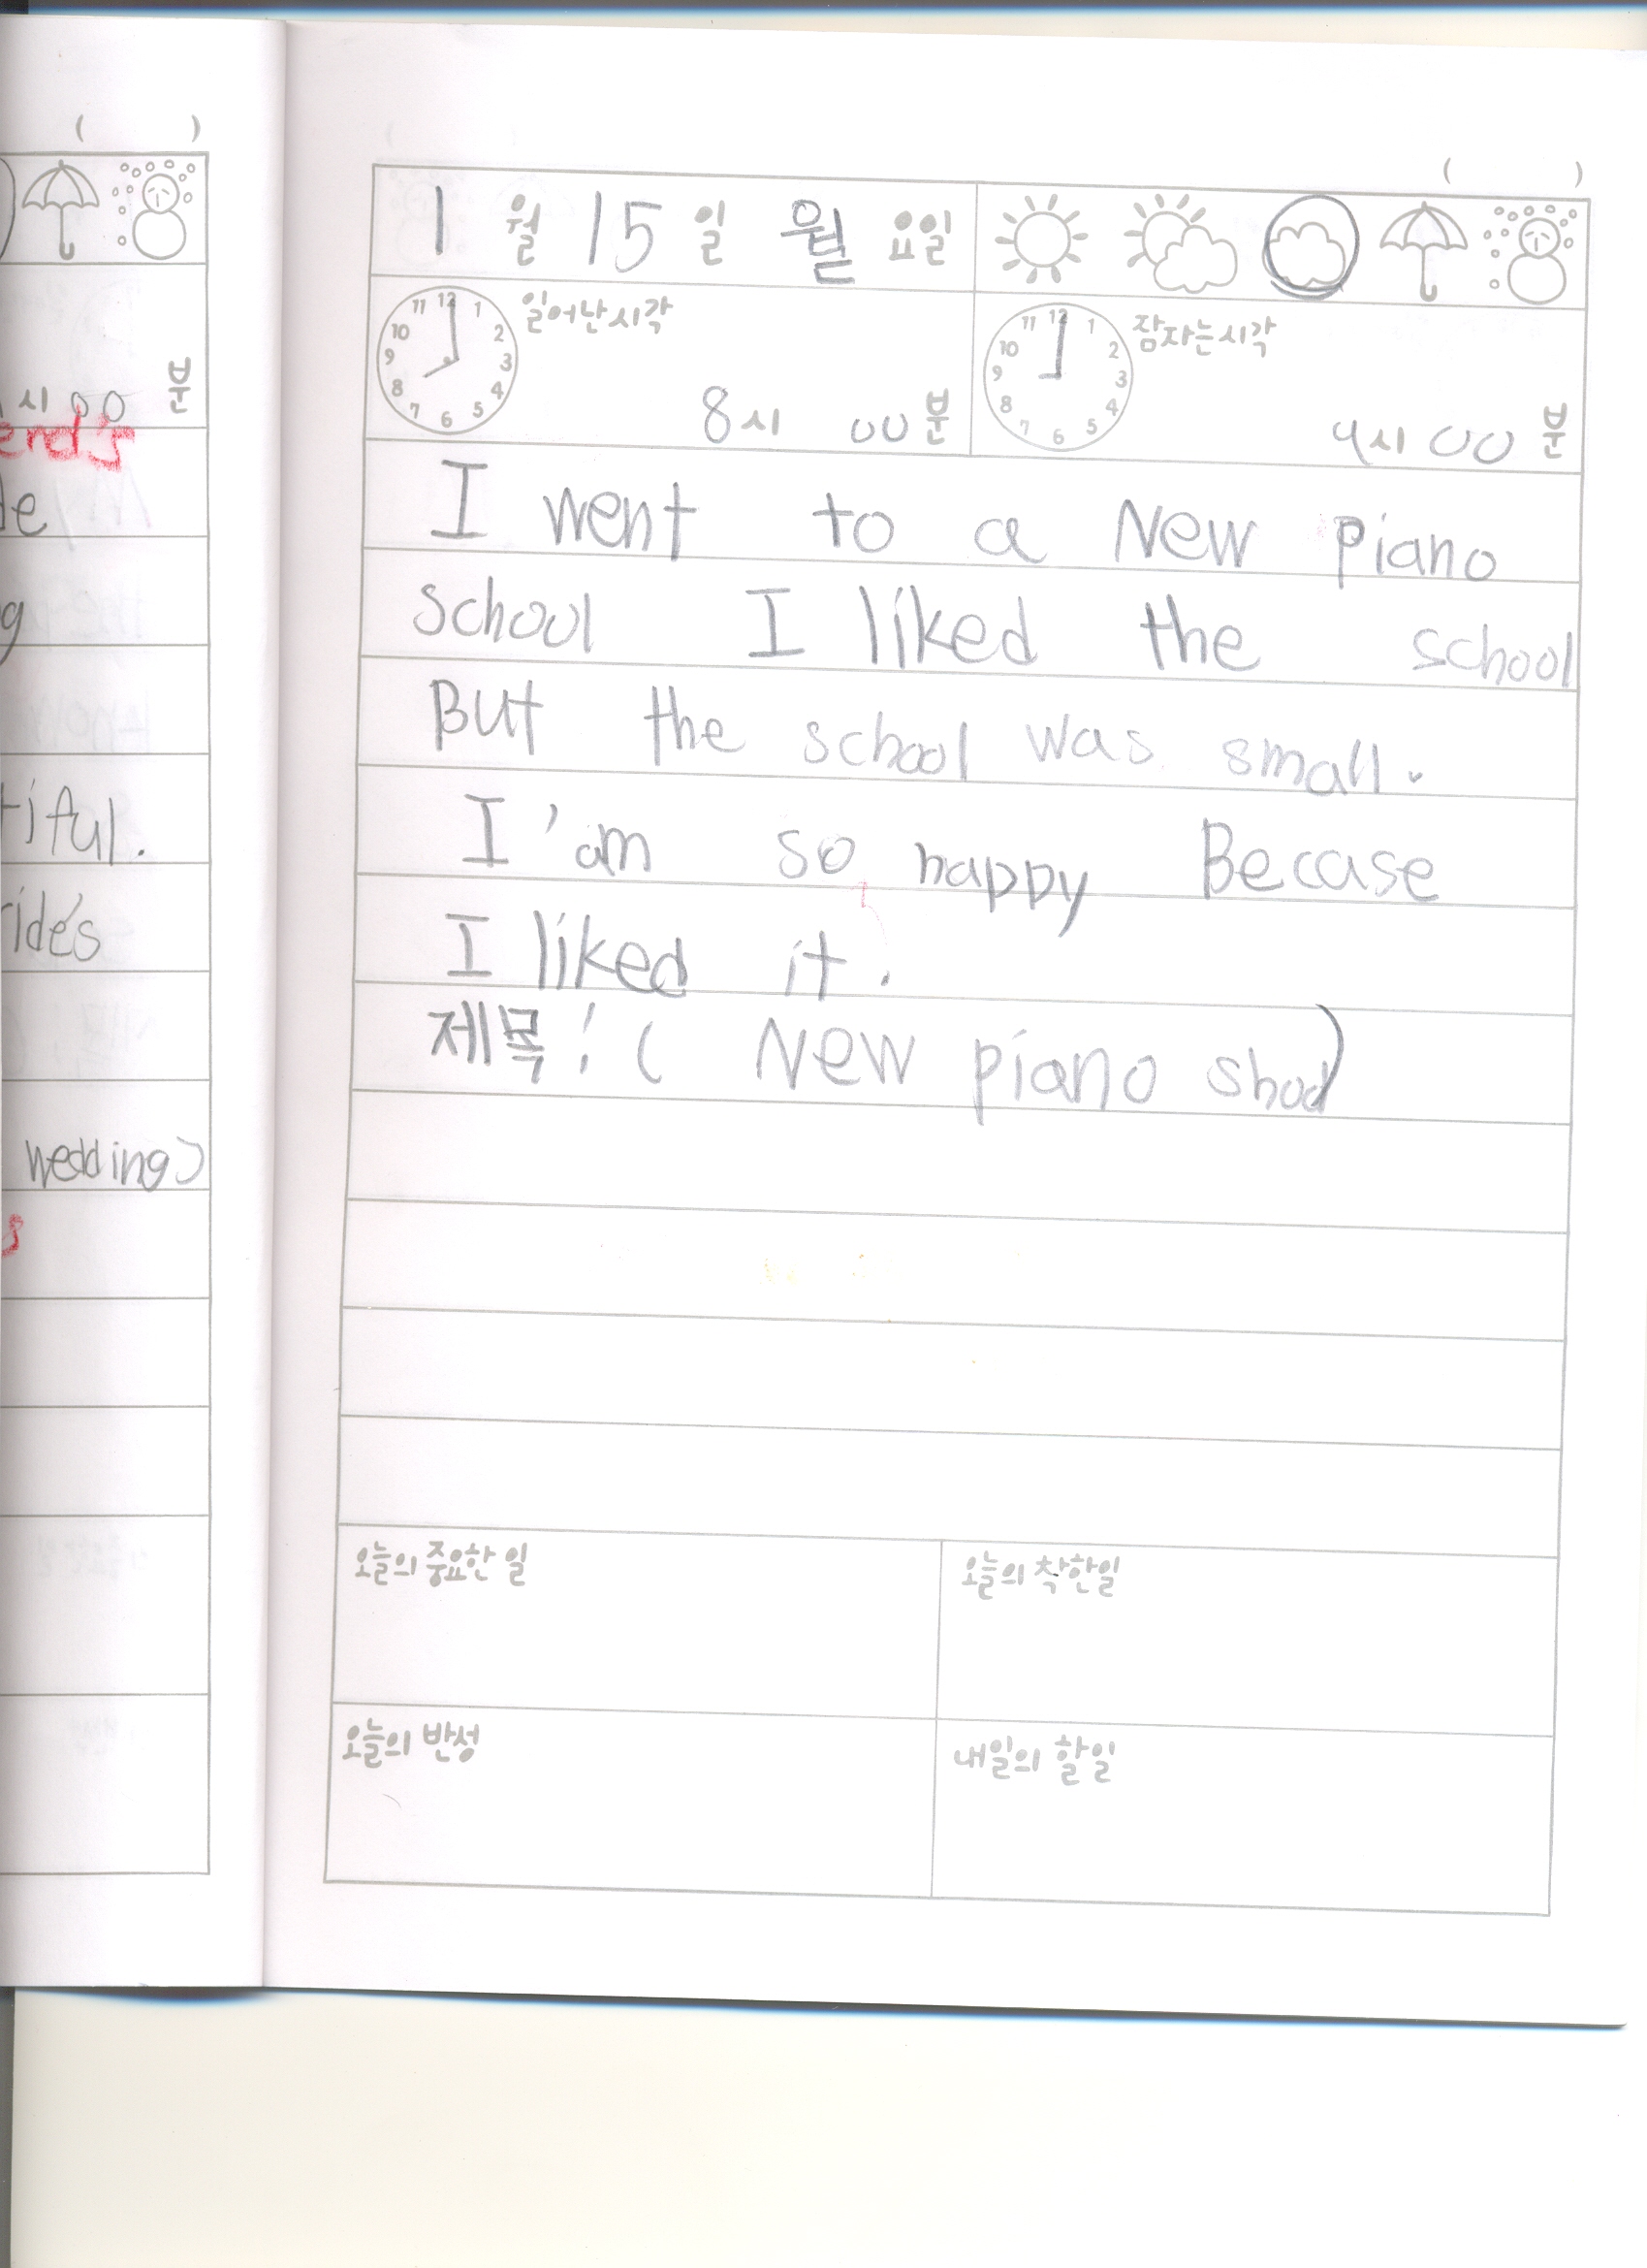 ( )
시 00 분
end's
de
g
tiful.
ride's
wedding)
s
( )
1 월 15 일 월 요일
11 12 1 10 2 9 3 8 4 7 6 5
일어난시각
8시 00분
11 12 1 10 2 9 3 8 4 7 6 5
잠자는시각
9시 00분
I went to a New piano
school I liked the school
But the school was small.
I'am so happy Becase
I liked it.
제목:( New piano shool)
오늘의 중요한 일
오늘의 착한일
오늘의 반성
내일의 할일